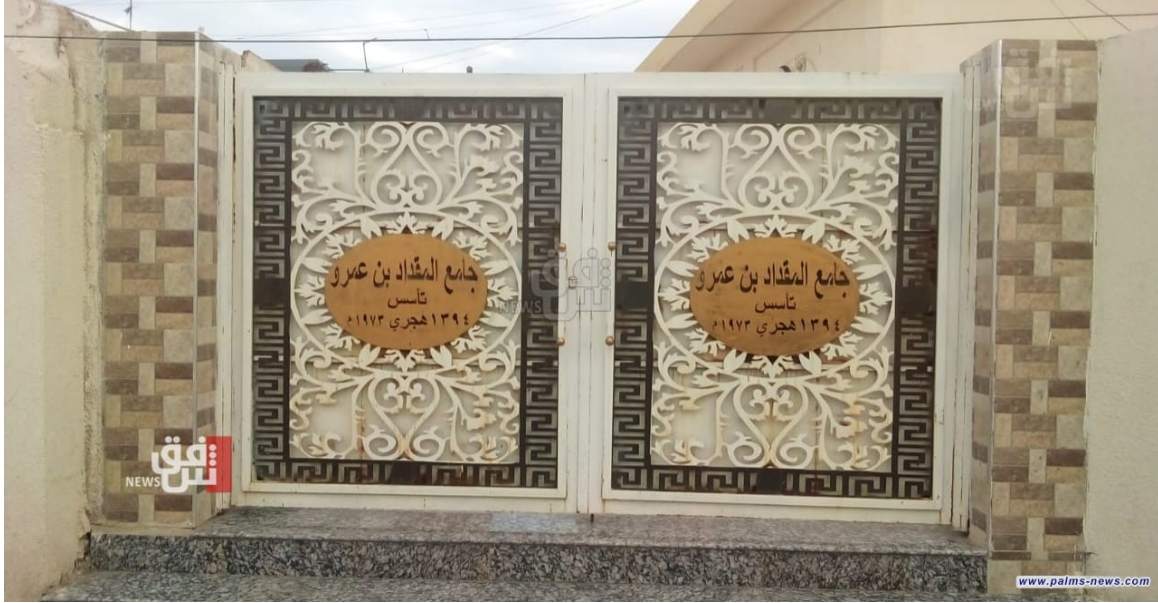 جامع المقداد بن عمرو
تأسس
١٣٩٤ هجري ١٩٧٣م
جامع المقداد بن عمرو
تأسس
١٣٩٤ هجري ١٩٧٣م
شفق
NEWS
شفق
NEWS
شفق
www.palms-news.com